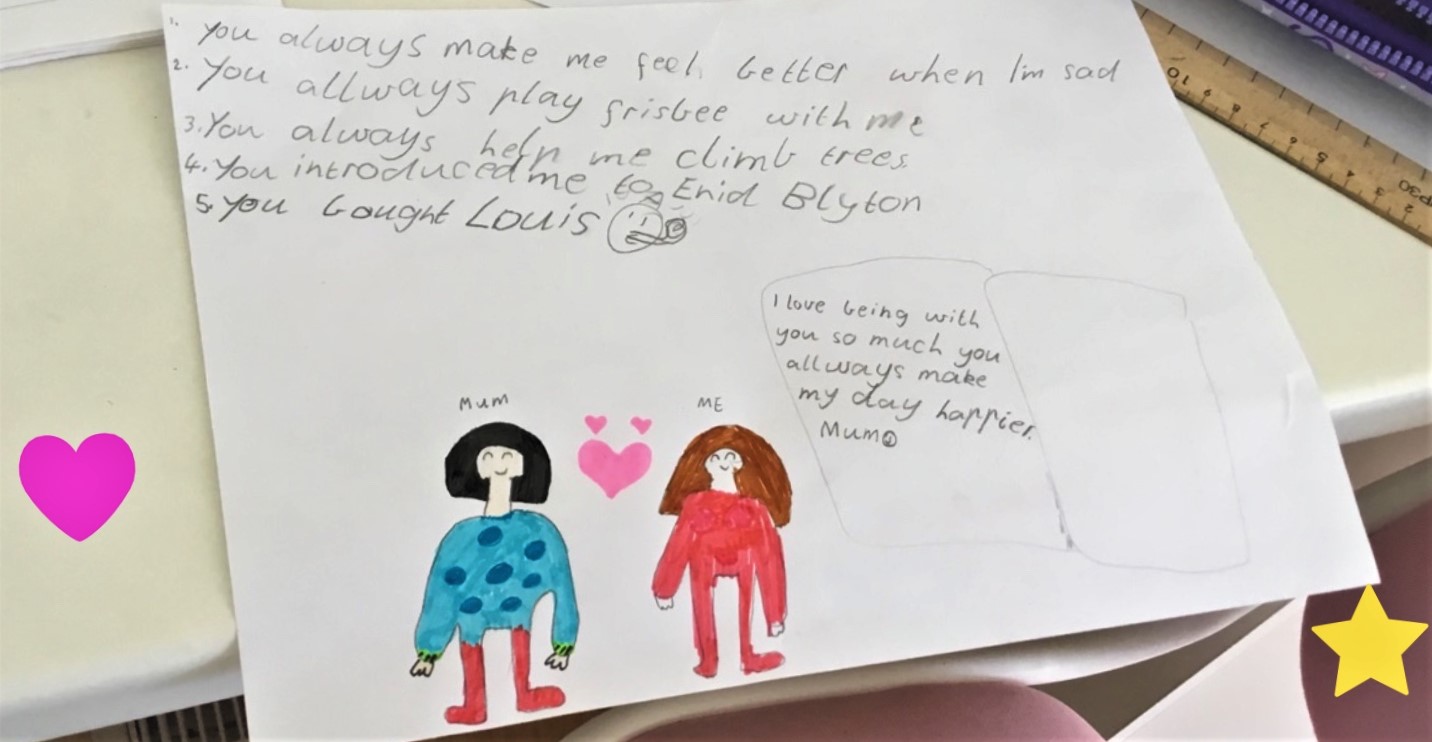 1. You always make me feel better when I'm sad
2. You allways play frisbee with me
3. You always help me climb trees.
4. You introduced me to Enid Blyton
5. You bought Louis
I love being with
you so much you
allways make
my day happier.
Mum
MUM
ME
10 9 8 7 6 5 4 3 2